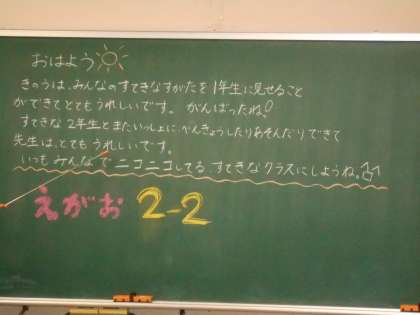 おはよう
きのうは、みんなのすてきなすがたを1年生に見せること
ができてとてもうれしいです。がんばったね!
すてきな2年生とまたいっしょに、べんきょうしたりあそんだりできて
先生は、とてもうれしいです。
いつもみんなでニコニコしてる、すてきなクラスにしようね。
えがお 2-2